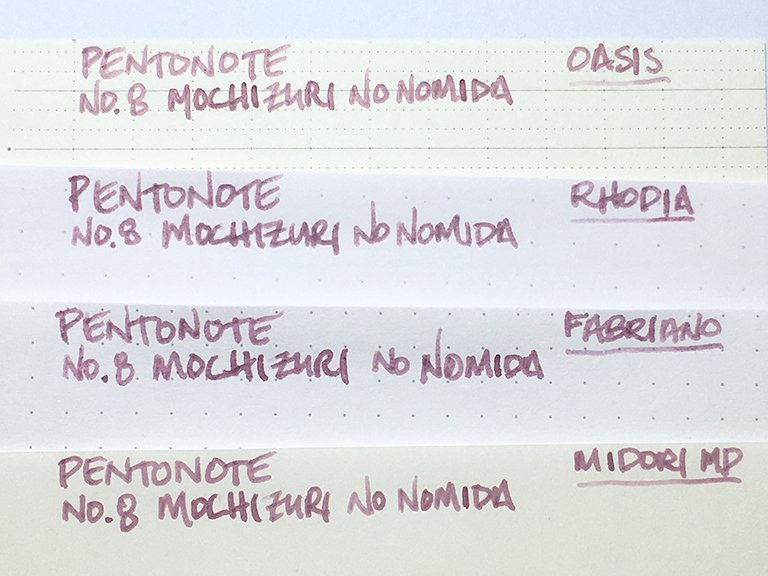 PENTONOTE OASIS
NO.8 MOCHIZURI NO NOMIDA
PENTONOTE RHODIA
NO.8 MOCHIZURI NO NOMIDA
PENTONOTE FABRIANO
NO.8 MOCHIZURI NO NOMIDA
PENTONOTE MIDORI MD
NO.8 MOCHIZURI NO NOMIDA